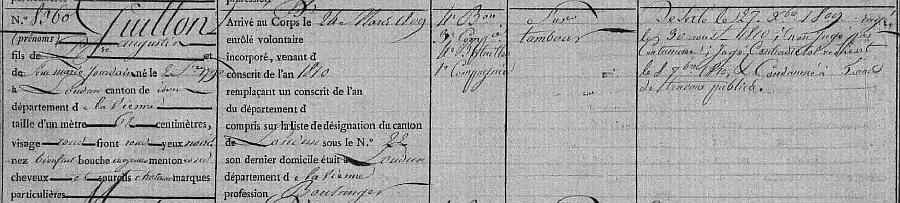 N.° 8360 Guillon
(prénoms) augustin
fils de
et de marie Jourdain né le 2 1790
à Loudun canton de idem
département d e la Vienne
taille d'un mètre 62 centimètres,
visage rond front rond yeux noirs
nez bienfait bouche moyenne menton rond
cheveux et sourcils chatains marques
particulières
Arrivé au Corps le 24 Mars 1809
enrôlé volontaire
incorporé, venant d
conscrit de l'an 1810
remplaçant un conscrit de l'an
du département d
compris sur la liste de désignation du canton
de Loudun sous le N.° 22
son dernier domicile était à Loudun
département d e la Vienne
profession Boulanger
4e Bon
3e Compie
4e Bataillon
1e Compagnie
tambour
Deserté le 27 8bre 1809
le 30 aout 1810 non Jugé par
Contumace, Jugé Contradictoirement
le 8 7bre 1810, & Condamné à 3 ans
de travaux publics.